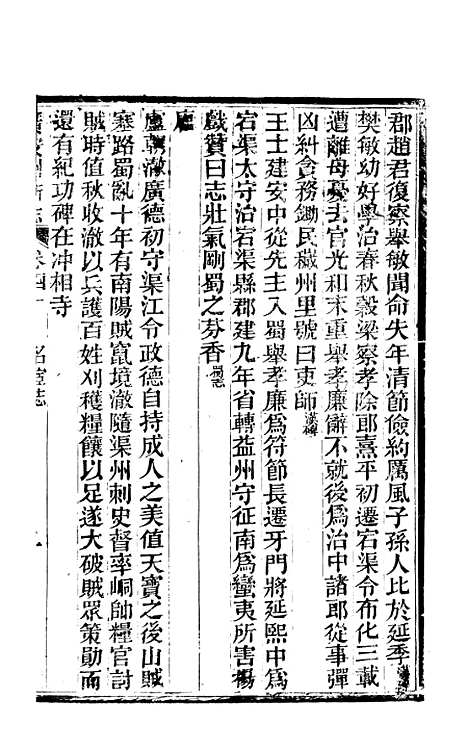 郡趙君復察舉敏聞命失年清節儉約厲風子孫人比於延季
樊敏幼好學治春秋穀梁察孝除郎熹平初遷宕渠令布化三載
遭離母憂去官光和末重舉孝廉辭不就後爲治中諸郎從事彈
凶糾貪務鋤民穢州里號曰吏師漢碑
王士建安中從先主入蜀舉孝廉爲符節長遷牙門將延熙中爲
宕渠太守治宕渠縣郡建九年省轉益州守征南爲蠻夷所害楊
戲贊曰志壯氣剛蜀之芬香蜀志
唐
盧朝澈廣德初守渠江令政德自持成人之美值天寶之後山賊
塞路蜀亂十年有南陽賊竄境澈隨渠州刺史督率峒帥糧官討
賊時值秋收澈以兵護百姓刈穫糧饟以足遂大破賊眾策勛而
還有紀功碑在冲相寺
卷四十 名宦志